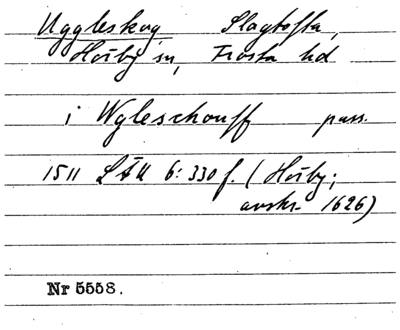 Uggleskog Slagtofta,
Hörby sn, Frosta hd
i Wgleschouff pass.
1511 LÄU 6:330 f. (Hörby;
avskr. 1626)
Nr 5558.